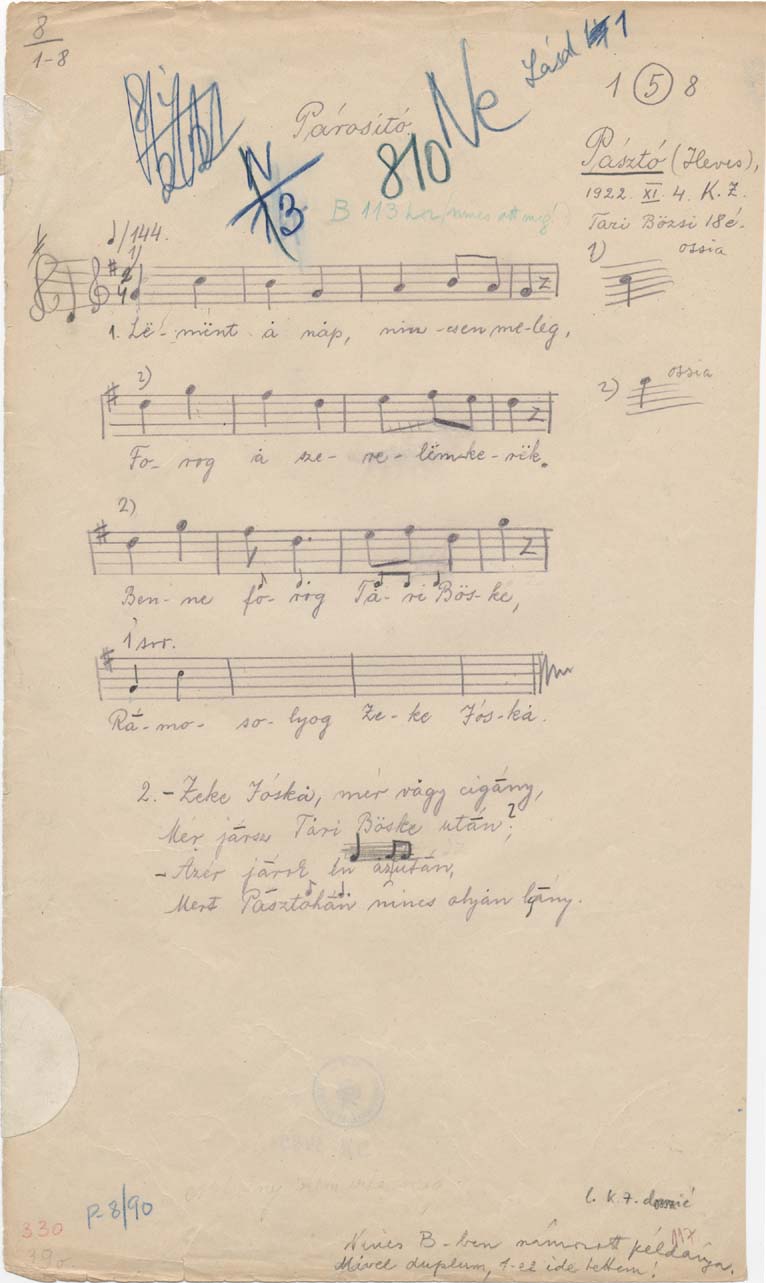 8
1-8
Lásd 1
1 5 8
Párosító
810 Ne
N
13
Pásztó (Heves),
1922. XI. 4. K. Z.
Tari Bözsi 18é.
B 113
♩/144.
1) ossia
1)
2
4
1. Lë-mënt å nåp, nin-csen me-leg,
2)
2) ossia
Fo-rog å sze-re-lëm-ke-rék.
2)
Ben-ne fo-rog Tá-ri Bös-ke,
1 sor.
Rá-mo-so-lyog Ze-ke Jós-kå.
2. - Zeke Jóskå, mér vågy cigány,
Mér jársz Tári Böske után?
- Azér járok én åzután,
Mert Pásztóhán nincs olyján lyány.
P-8/90
330
390
l. K. Z.
Nincs B-ben számozott példánya.
Mivel duplum, 1-ez ide tettem!